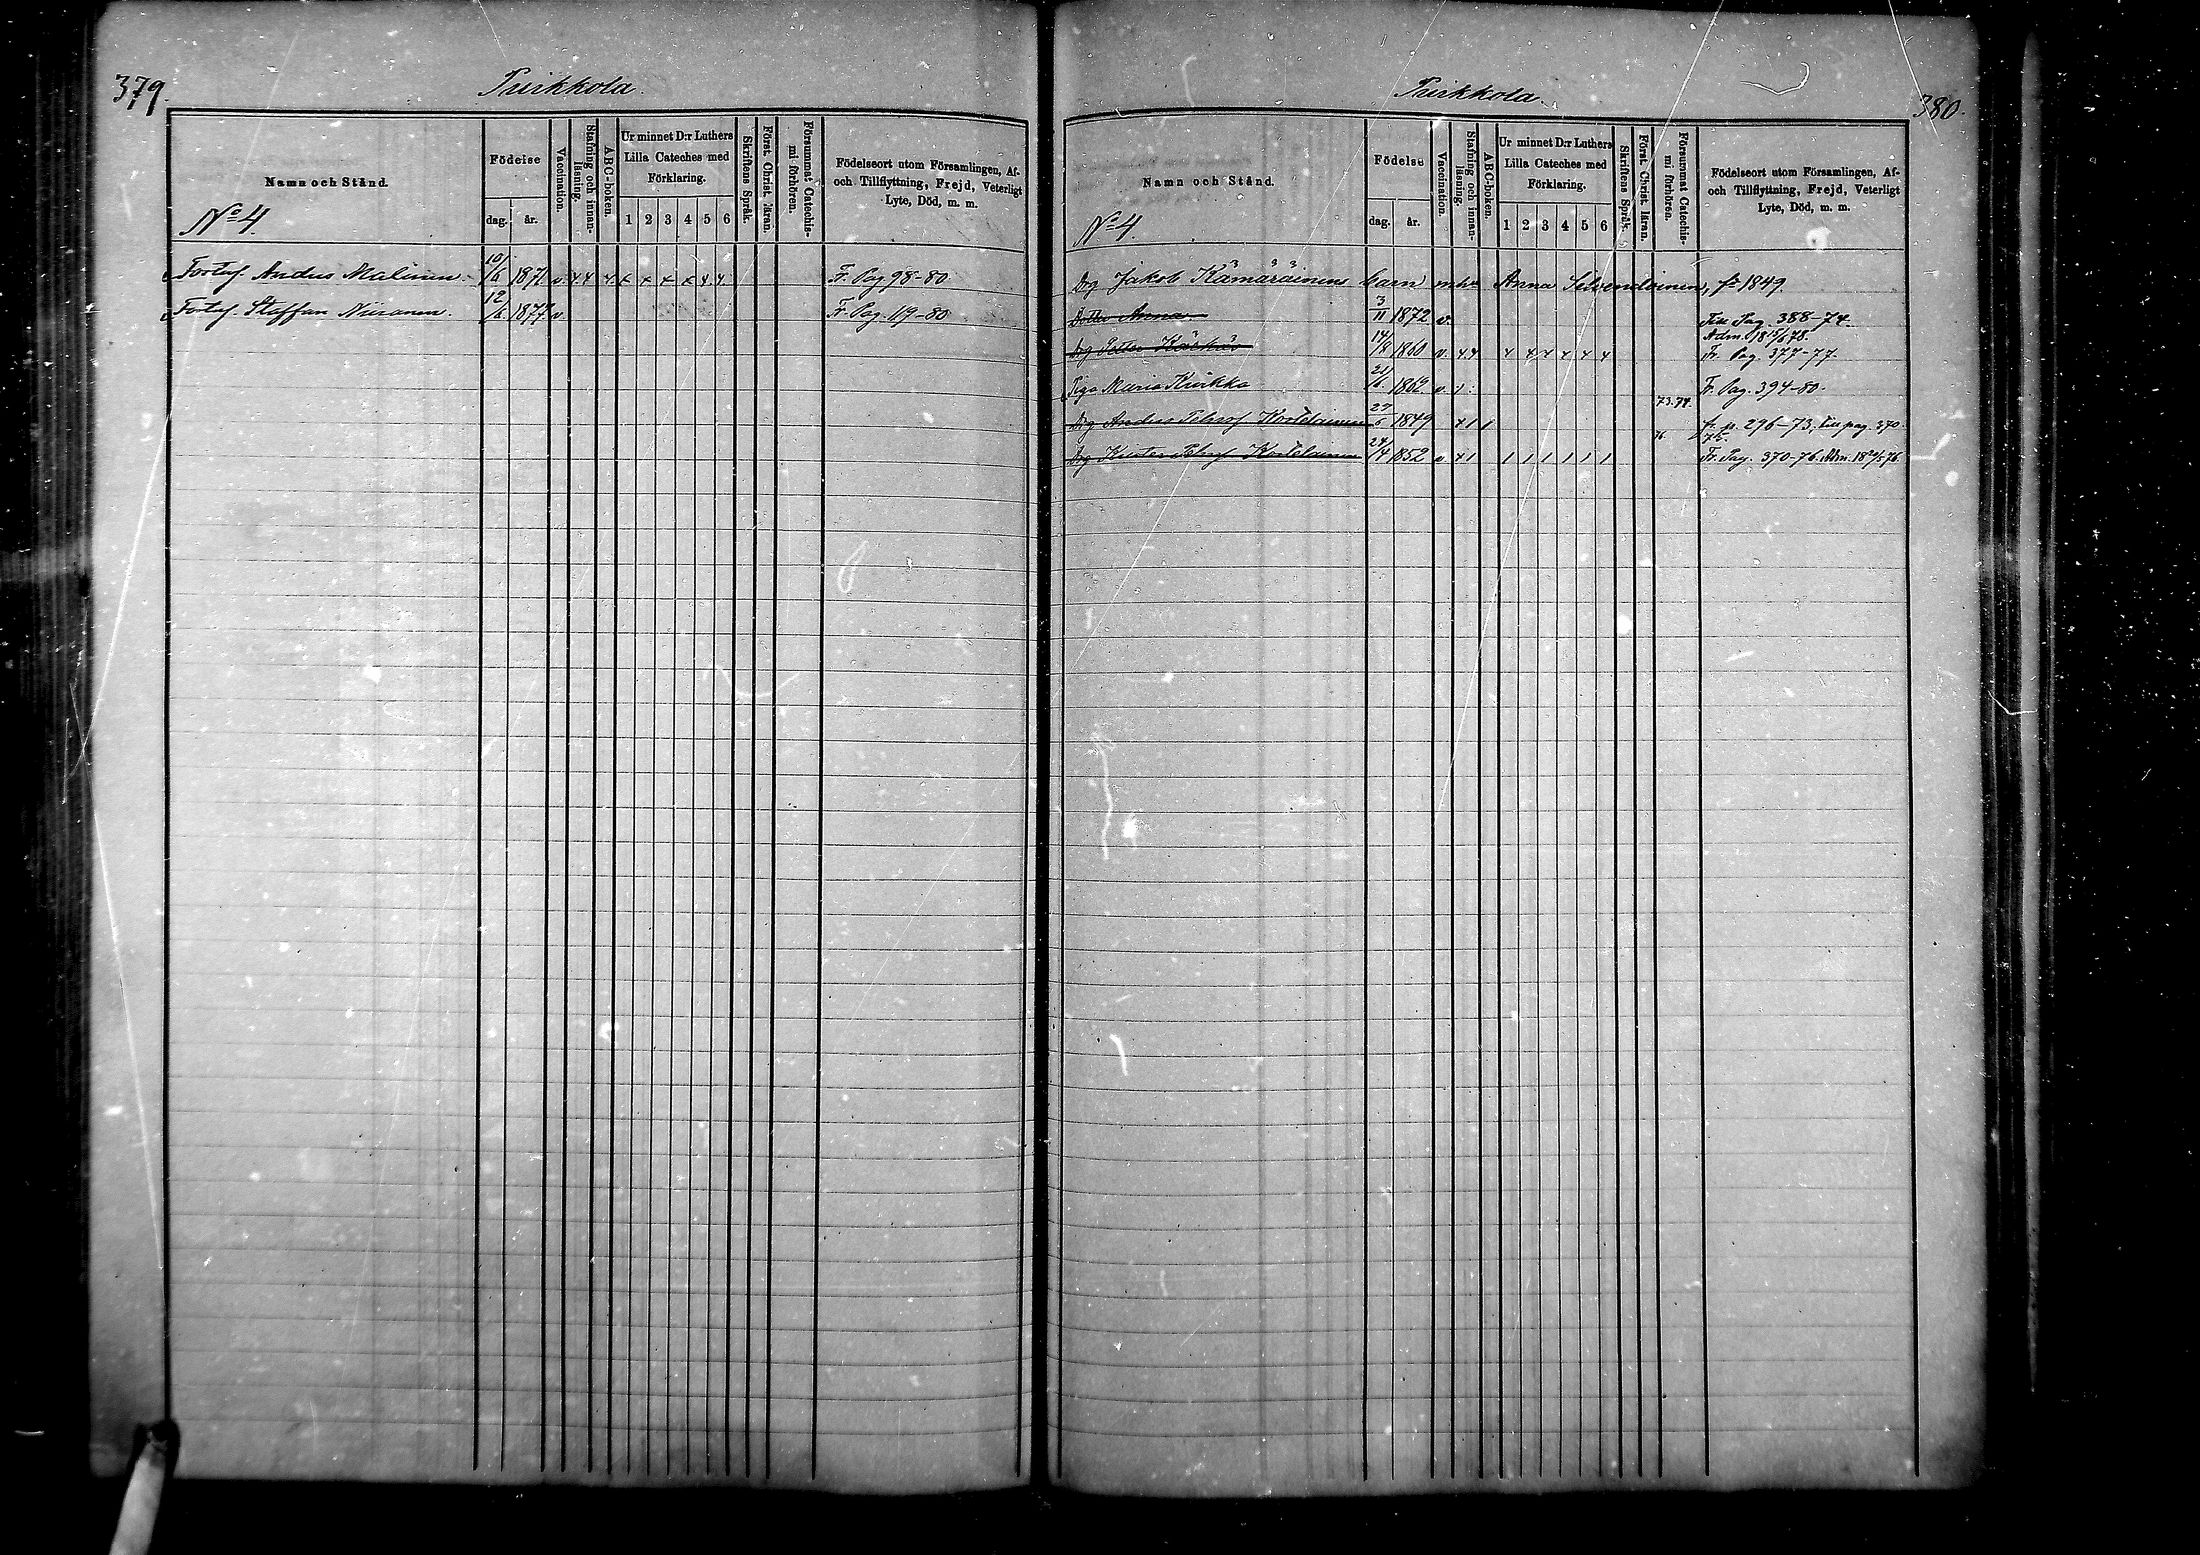 379.
Purkkola.
Namn och Stånd.
Födelse
dag.
år.
Vaccination.
Stafning och innan-
läsning.
ABC-boken.
Ur minnet D:r Luthers
Lilla Cateches med
Förklaring.
1 2 3 4 5 6
Skriftens Språk.
Först. Christ. läran.
Försummat Catechis-
mi förhören.
Födelseort utom Församlingen, Af-
och Tillflyttning, Frejd, Veterligt
Lyte, Död, m. m.
No 4.
Fostes. Anders Malinen 10/6 1871 v. x x x. x x x x x x Fr. Pag 98-80
Fostes. Staffan Niiranen. 12/6 1877 v. Fr. Pag. 119-80
Purkkola.
380.
Namn och Stånd.
Födelse
dag.
år.
Vaccination.
Stafning och innan-
läsning.
ABC-boken.
Ur minnet D:r Luthers
Lilla Cateches med
Förklaring.
1 2 3 4 5 6
Skriftens Språk.
Först. Christ. läran.
Försummat Catechis-
mi förhören.
Födelseort utom Församlingen, Af-
och Tillflyttning, Frejd, Veterligt
Lyte, Död, m. m.
No 4.
Drg Jakob Kämäräinens barn mhu Anna Silvendoinen, fr 1849.
Dotter Anna 3/11 1872 v. Till Pag. 388-74.
Drg Petter 14/8 1860 v. x x x x x x x x Adm. 18 15/6 78. Fr. Pag. 377-77.
Piga Maria Kurkko 21/6 1862 v. 1. Fr. Pag. 394-80.
Drg Anders Korhelainen 27/5 1849 x 1 1 73.74. fr. p. 296-73, till pag. 370
75.
Drg Korhelainen 24/4 1852 v x 1 1 1 1 1 1 1 76 Fr. Pag. 370-76.